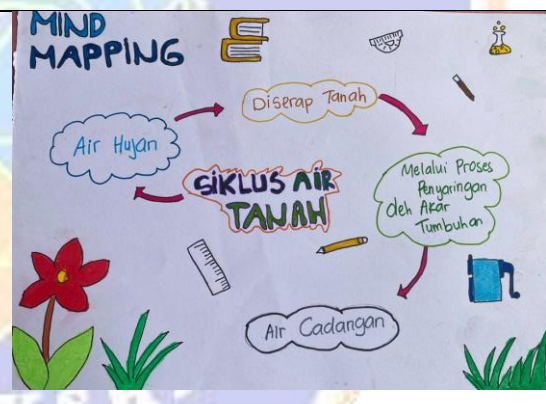 MIND
MAPPING
Diserap Tanah
Air Hujan
SIKLUS AIR
TANAH
Melalui Proses
Penyaringan
Oleh Akar
Tumbuhan
Air Cadangan